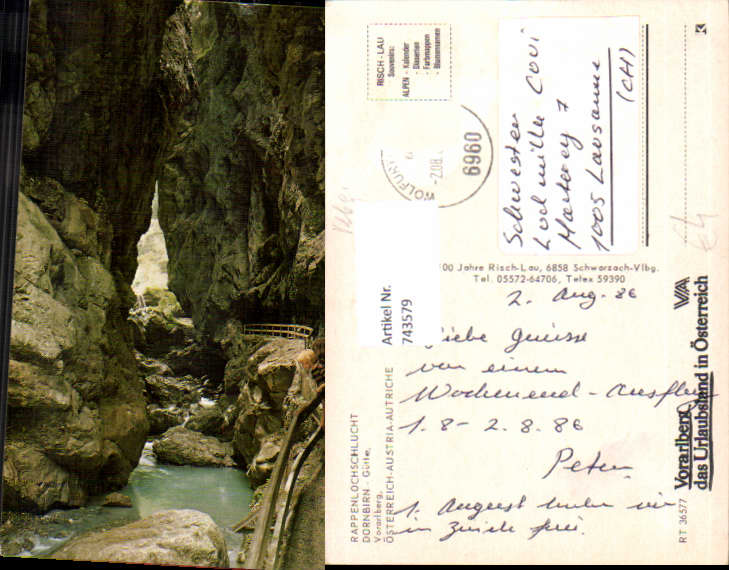 RISCH-LAU
Souvenirs:
ALPEN - Kalender
- Diaserien
- Farbmappen
- Blumenkarten
WOLFURT
-2.08.
6960
Schwester
Ludmilla COVI
Marterey 7
1005 Lausanne
(CH)
100 Jahre Risch-Lau, 6858 Schwarzach-Vlbg.
Tel. 05572-64706, Telex 59390
2. Aug. 86
Liebe Grüsse
von einem
Wochenend - Ausflug
1.8 - 2.8.86
Peter
1. August haben wir
in Zürich frei.
Artikel Nr.
743579
RAPPENLOCHSCHLUCHT
DORNBIRN - Gütle,
Vorarlberg,
ÖSTERREICH-AUSTRIA-AUTRICHE
Vorarlberg
das Urlaubsland in Österreich
RT 36577